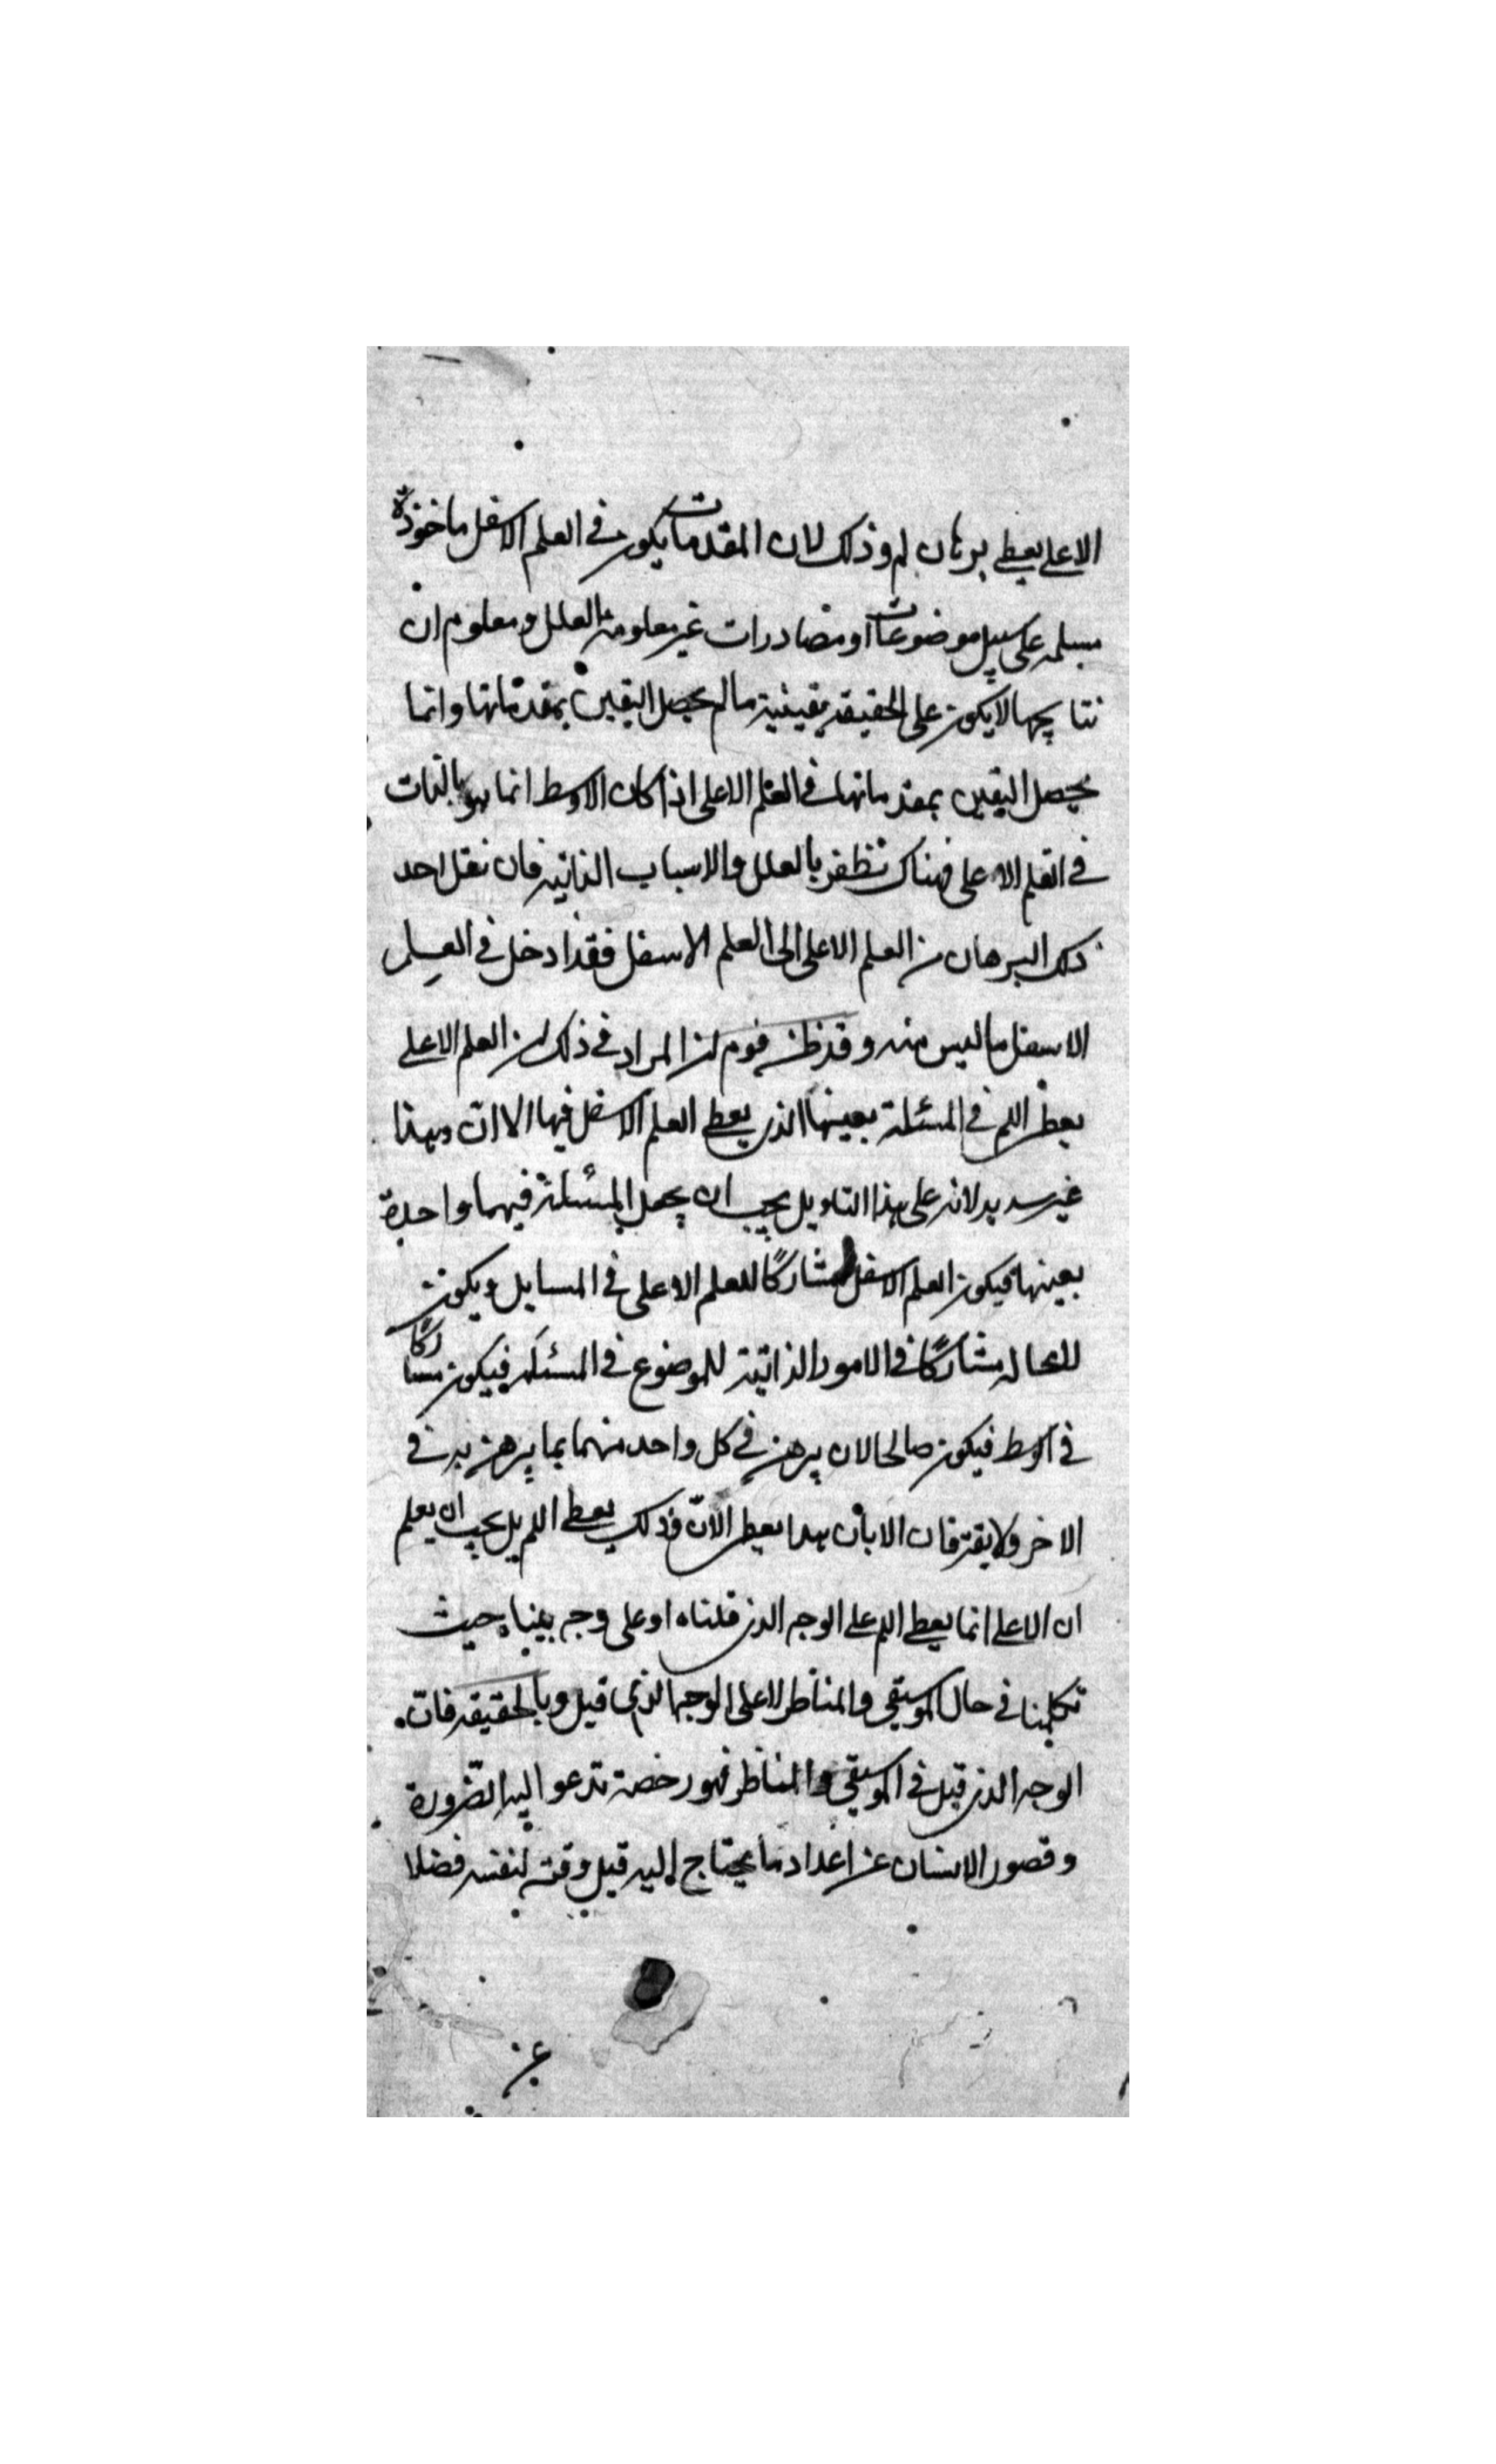 الاعلى يعطى برهان لم وذلك لان المقدمات يكون فى العلم الاسفل ماخوذة
مسلمة على سبيل موضوعات او مصادرات غير معلومة العلل ومعلوم ان
نتايجها لا يكون على الحقيقة يقينية ما لم يحصل اليقين بمقدماتها وانما
يحصل اليقين بمقدماتها فى العلم الاعلى اذا كان الاوسط انما هو بالذات
فى العلم الاعلى فهناك تظفر بالعلل والاسباب الذاتية فان نقل احد
ذلك البرهان من العلم الاعلى الى العلم الاسفل فقد ادخل فى العلم
الاسفل ما ليس منه وقد ظن قوم ان المراد فى ذلك ان العلم الاعلى
يعطى اللم فى المسئلة بعينها الذى يعطى العلم الاسفل فيها الا ان وهذا
غير سديد لانه على هذا التاويل يجب ان يجعل المسئلة فيهما واحدة
بعينها فيكون العلم الاسفل مشاركًا للعلم الاعلى فى المسايل ويكون
لا محالة مشاركًا فى الامور الذاتية للموضوع فى المسئلة فيكون مشاركًا
فى اوسط فيكون صالحا لان يبرهن فى كل واحد منهما بما يبرهن به فى
الاخر ولا يفترقان الا بان هذا يعطى الانّ وذلك يعطى اللم بل يجب ان يعلم
ان الاعلى انما يعطى اللم على الوجه الذى قلناه او على وجه بينا حيث
تكلمنا فى حال الموسيقى والمناظر لا على الوجه الذى قيل وبالحقيقة فان
الوجه الذى قيل فى الموسيقى والمناظر فهو رخصة تدعو اليه الضرورة
وقصور الانسان عن اعداد ما يحتاج اليه قبل وقته لنفسه فضلا
عن